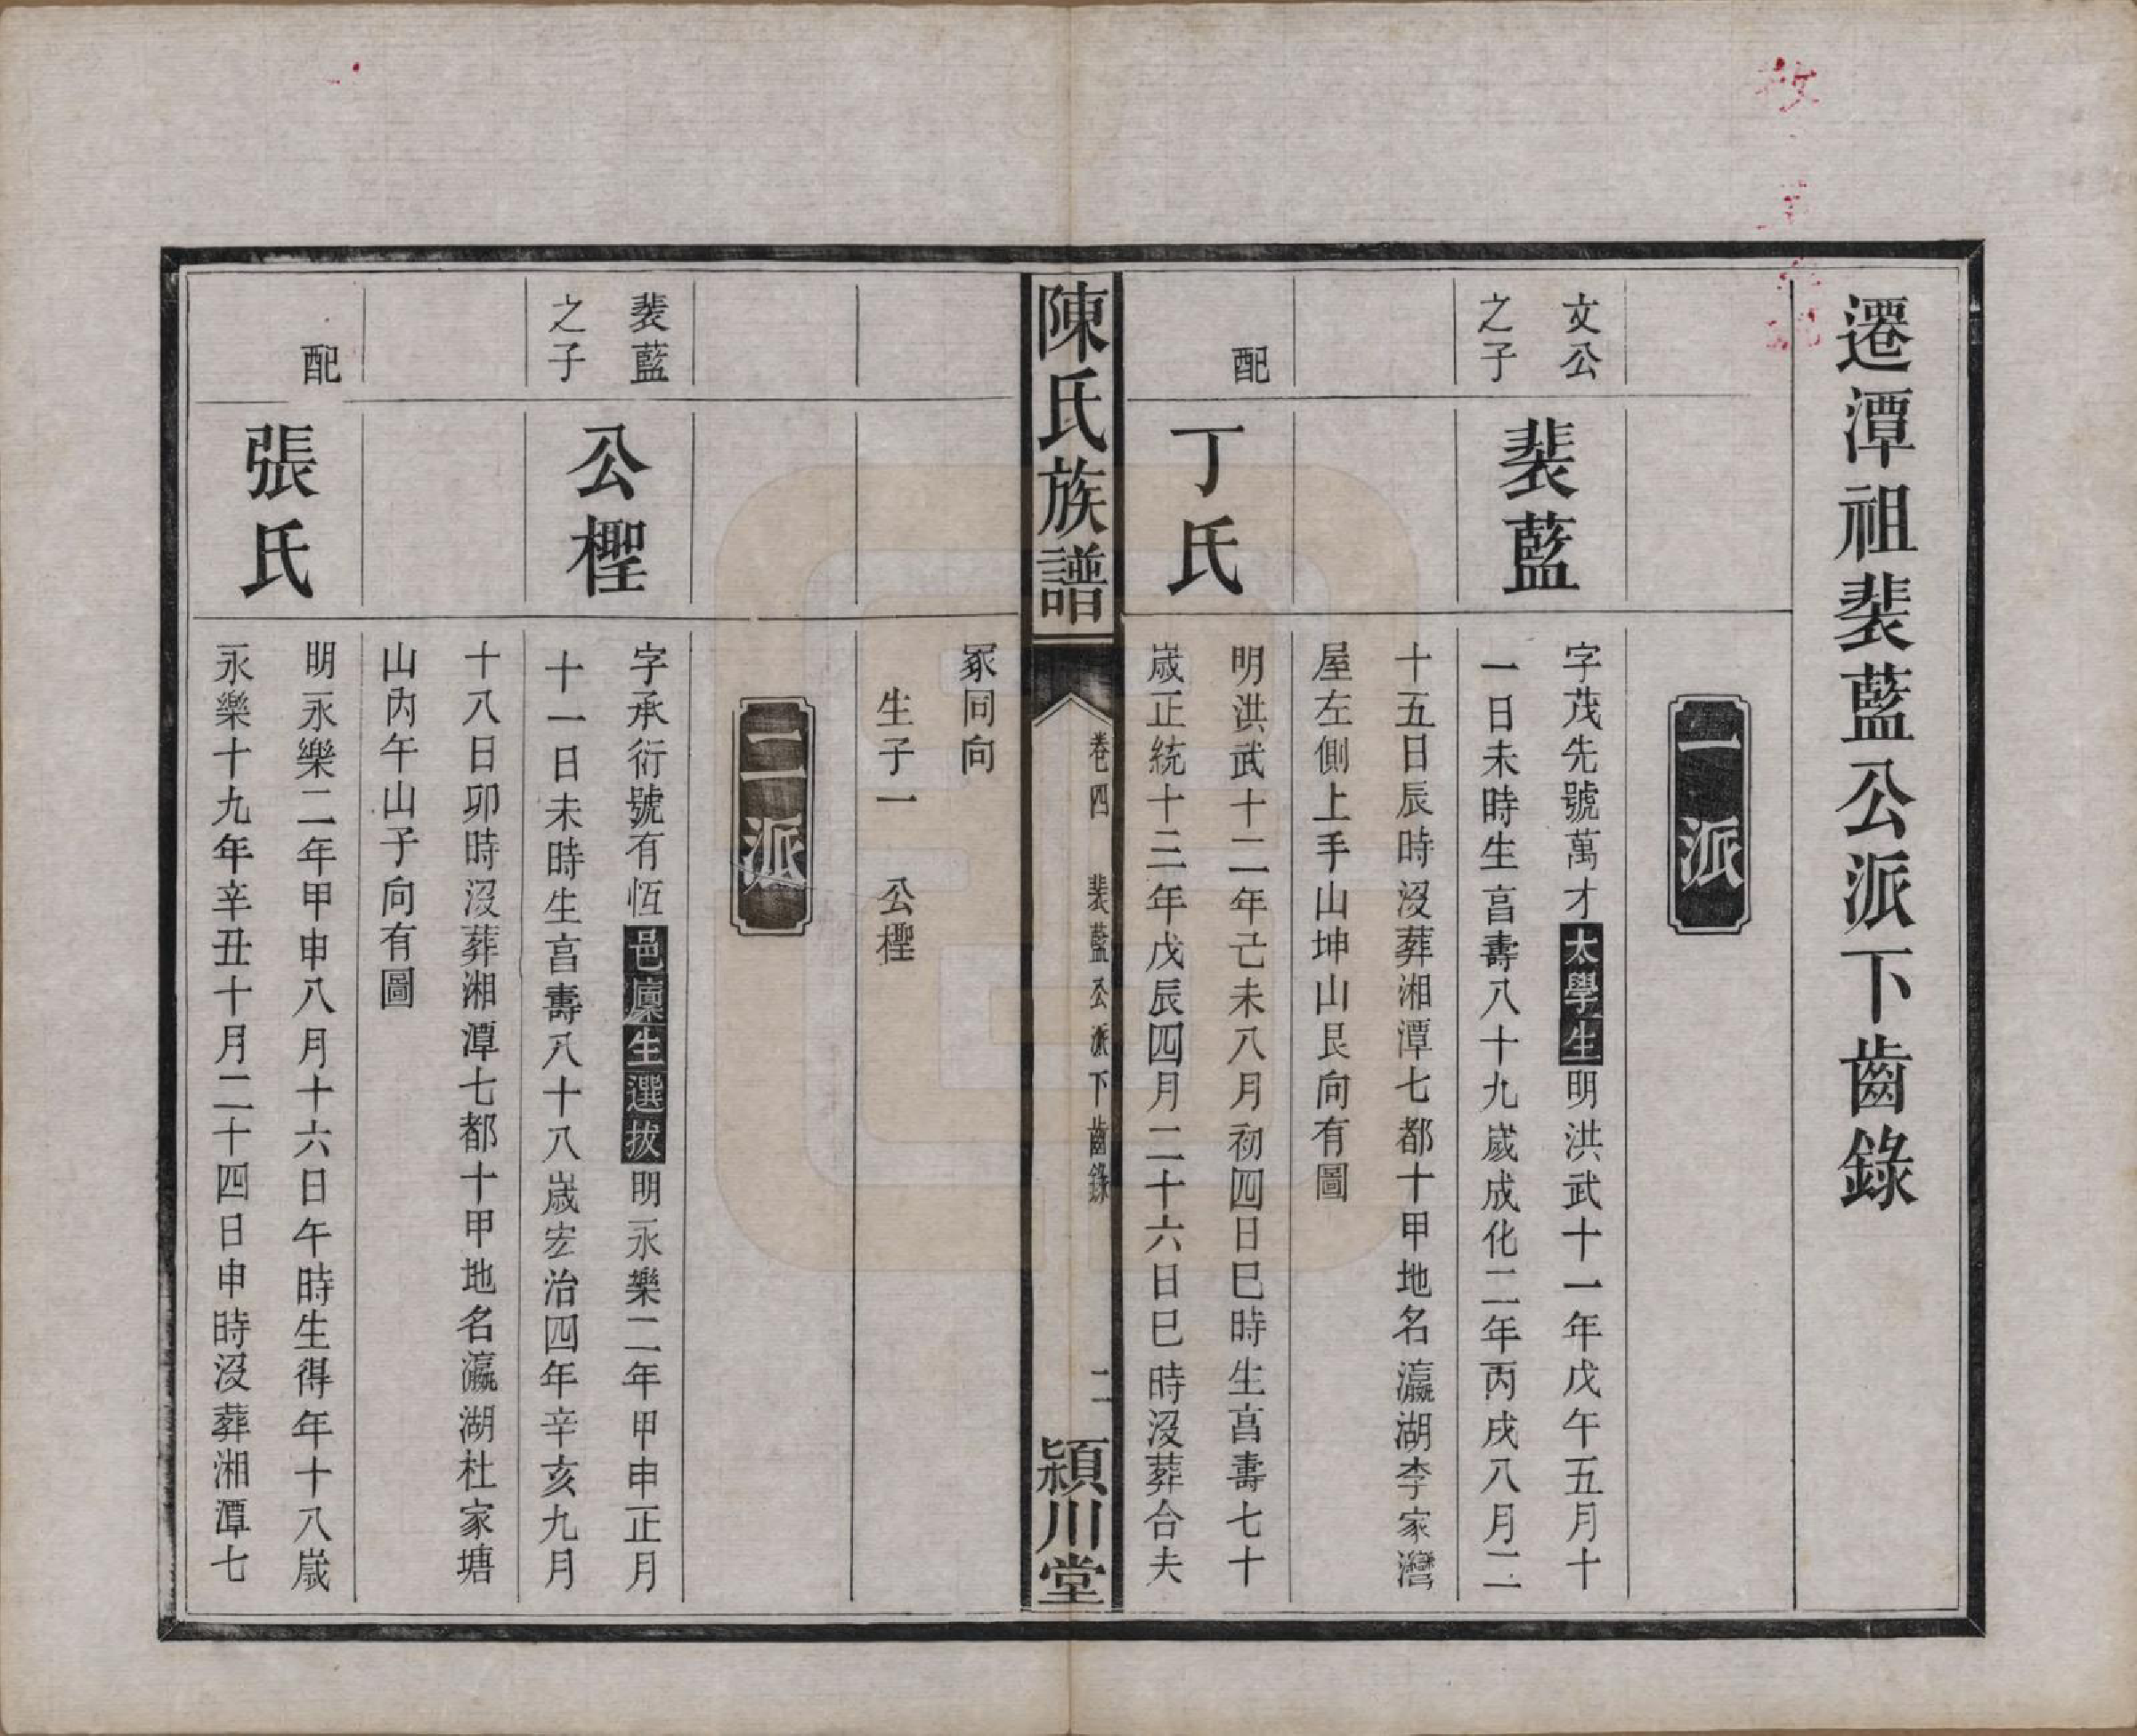 遷潭祖裴藍公派下齒錄
一派
文公
之子
裴藍
字茂先號萬才太學生明洪武十一年戊午五月十
一日未時生亯壽八十九歲成化二年丙戌八月二
十五日辰時沒葬湘潭七都十甲地名瀛湖李家灣
屋左側上手山坤山艮向有圖
配
丁氏
明洪武十二年己未八月初四日巳時生亯壽七十
歲正統十三年戊辰四月二十六日巳時沒葬合夫
陳氏族譜
卷四
裴藍公派下齒錄
二
潁川堂
冢同向
生子一 公檉
二派
裴藍
之子
公檉
字承衍號有恆邑廩生選拔明永樂二年甲申正月
十一日未時生亯壽八十八歲宏治四年辛亥九月
十八日卯時沒葬湘潭七都十甲地名瀛湖杜家塘
山內午山子向有圖
配
張氏
明永樂二年甲申八月十六日午時生得年十八歲
永樂十九年辛丑十月二十四日申時沒葬湘潭七